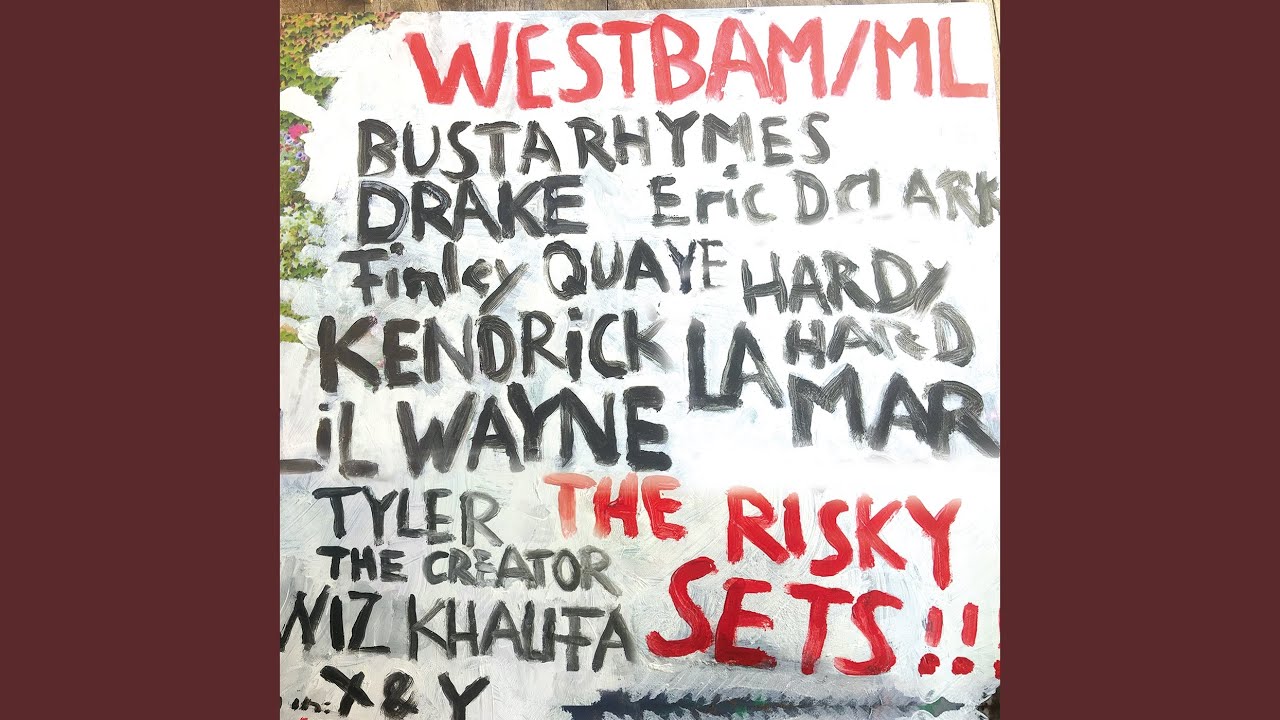 WESTBAM/ML
BUSTA RHYMES
DRAKE Eric D CLARK
Finley QUAYE HARDY
HARD
KENDRiCK LAMAR
LiL WAYNE
TYLER THE RISKY
THE CREATOR
WIZ KHALIFA SETS!!!
in: X & Y